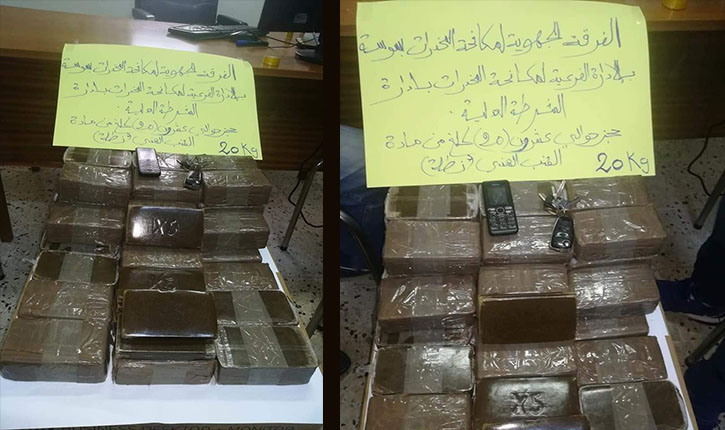 الفرقة الجهوية لمكافحة المخدرات بسوسة
بالإدارة الفرعية لمكافحة المخدرات بإدارة
الشرطة العدلية.
حجز حوالي عشرون (20) كلغ من مادة
القنب الهندي (زطلة)
20 Kg
XS
الفرقة الجهوية لمكافحة المخدرات بسوسة
بالإدارة الفرعية لمكافحة المخدرات بإدارة
الشرطة العدلية.
حجز حوالي عشرون (20) كلغ من مادة
القنب الهندي (زطلة)
20 Kg
XS